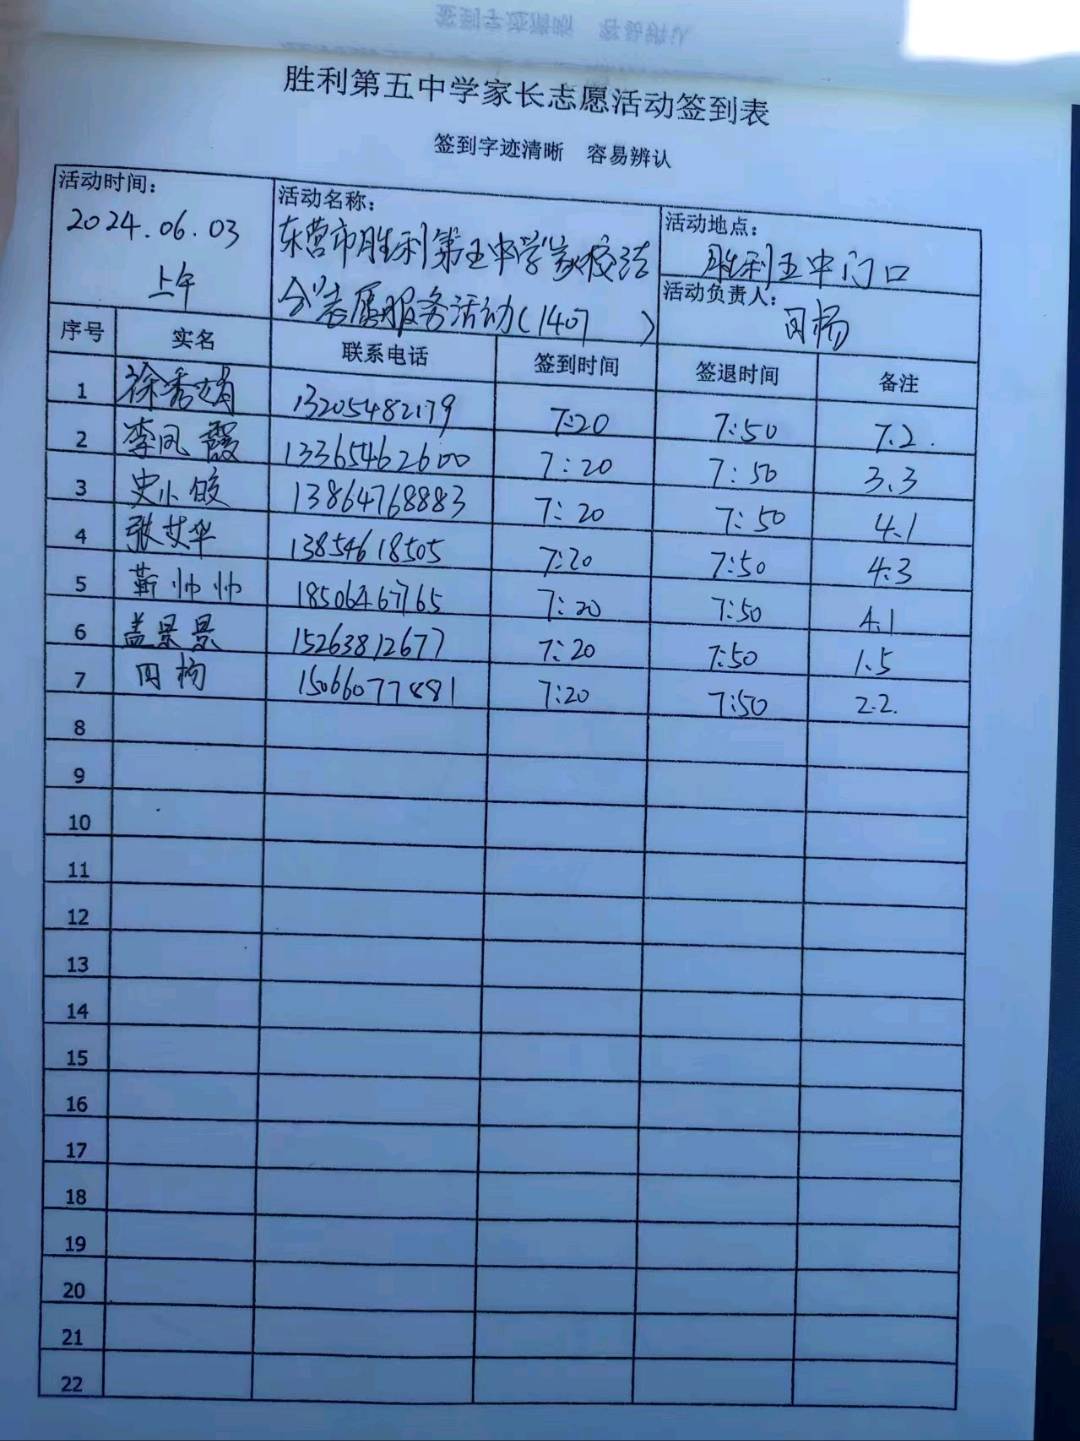 胜利第五中学家长志愿活动签到表
签到字迹清晰 容易辨认
活动时间: 2024.06.03 上午
活动名称: 东营市胜利第五中学家校结合志愿服务活动(1407 )
活动地点: 胜利五中门口
活动负责人: 田杨
序号 实名 联系电话 签到时间 签退时间 备注
1 徐秀娟 13205482179 7:20 7:50 7.2.
2 李凤霞 13365462600 7:20 7:50 3.3
3 史小皎 13864768883 7:20 7:50 4.1
4 张艾华 13854618505 7:20 7:50 4.3
5 靳帅帅 18506467765 7:20 7:50 4.1
6 盖景景 15263812677 7:20 7:50 1.5
7 田杨 15066077481 7:20 7:50 2.2.
8
9
10
11
12
13
14
15
16
17
18
19
20
21
22